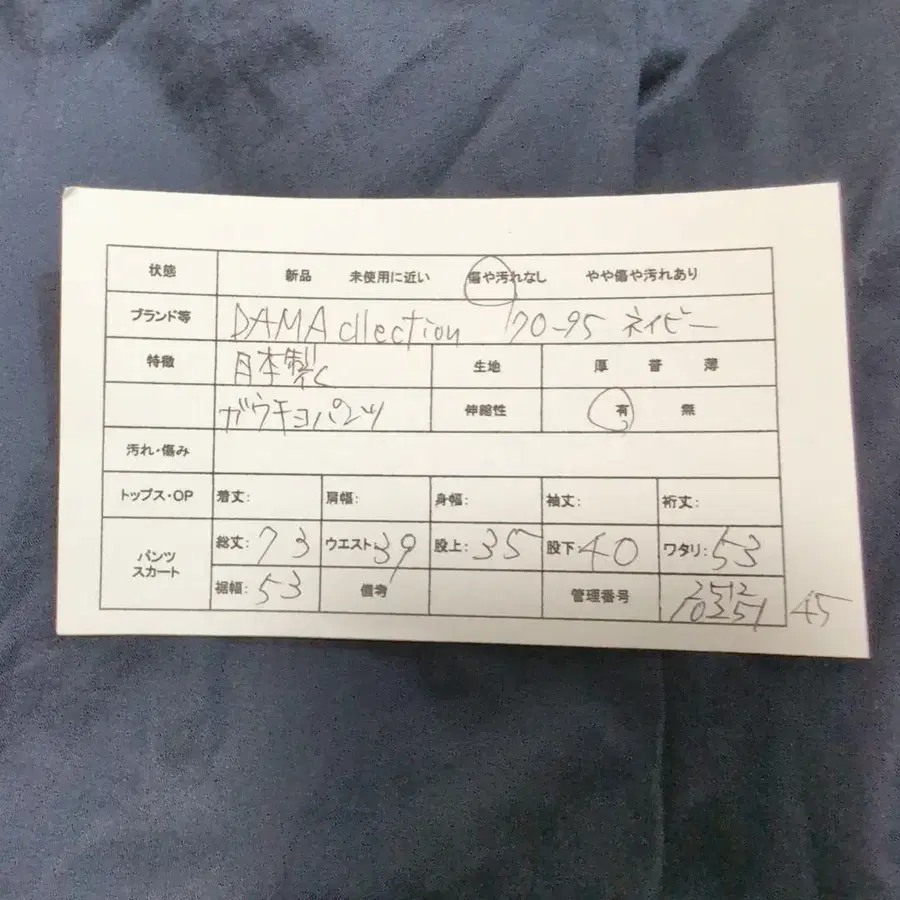 状態 新品 未使用に近い 傷や汚れなし やや傷や汚れあり
ブランド等 DAMA cllection 70-95 ネイビー
特徴 日本製 生地 厚 普 薄
ガウチョパンツ 伸縮性 有 無
汚れ・傷み
トップス・OP 着丈: 肩幅: 身幅: 袖丈: 裄丈:
パンツ スカート 総丈: 73 ウエスト 39 股上: 35 股下: 40 ワタリ: 53
裾幅: 53 備考 管理番号 2512
10251 45